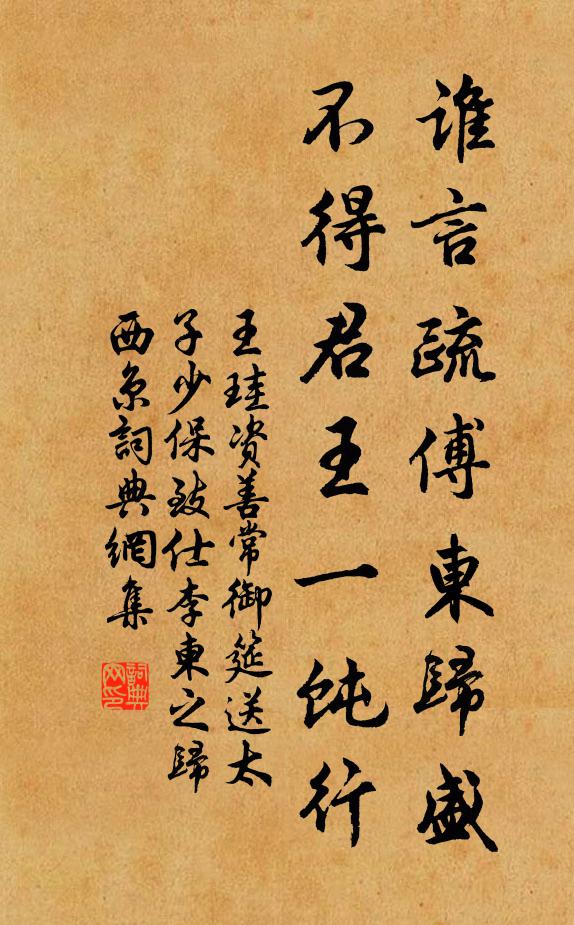 誰言疏傅東歸盛
不得君王一飩行
王珪资善常御筵送太
子少保致仕李東之歸
西京詞典網集
詞典
网印